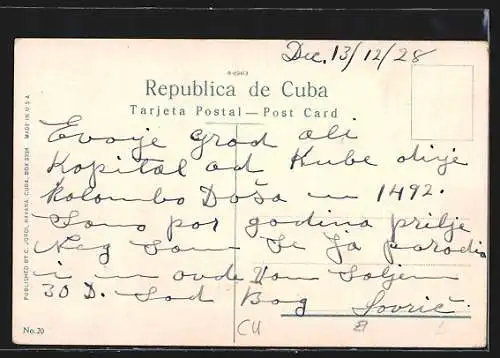 Dec. 13/12/28
Republica de Cuba
Tarjeta Postal — Post Card
Evoije grad ali
Kopital od Kube dije
Kolombo Doša u 1492.
Samo par godina prilje
Neg sam se ja parodia
i u ovde Vam Saljem
30 D. Sad Bog
Sovrić
PUBLISHED BY C. JORDI, HAVANA, CUBA, BOX MADE IN U.S.A.
No. 20
CU